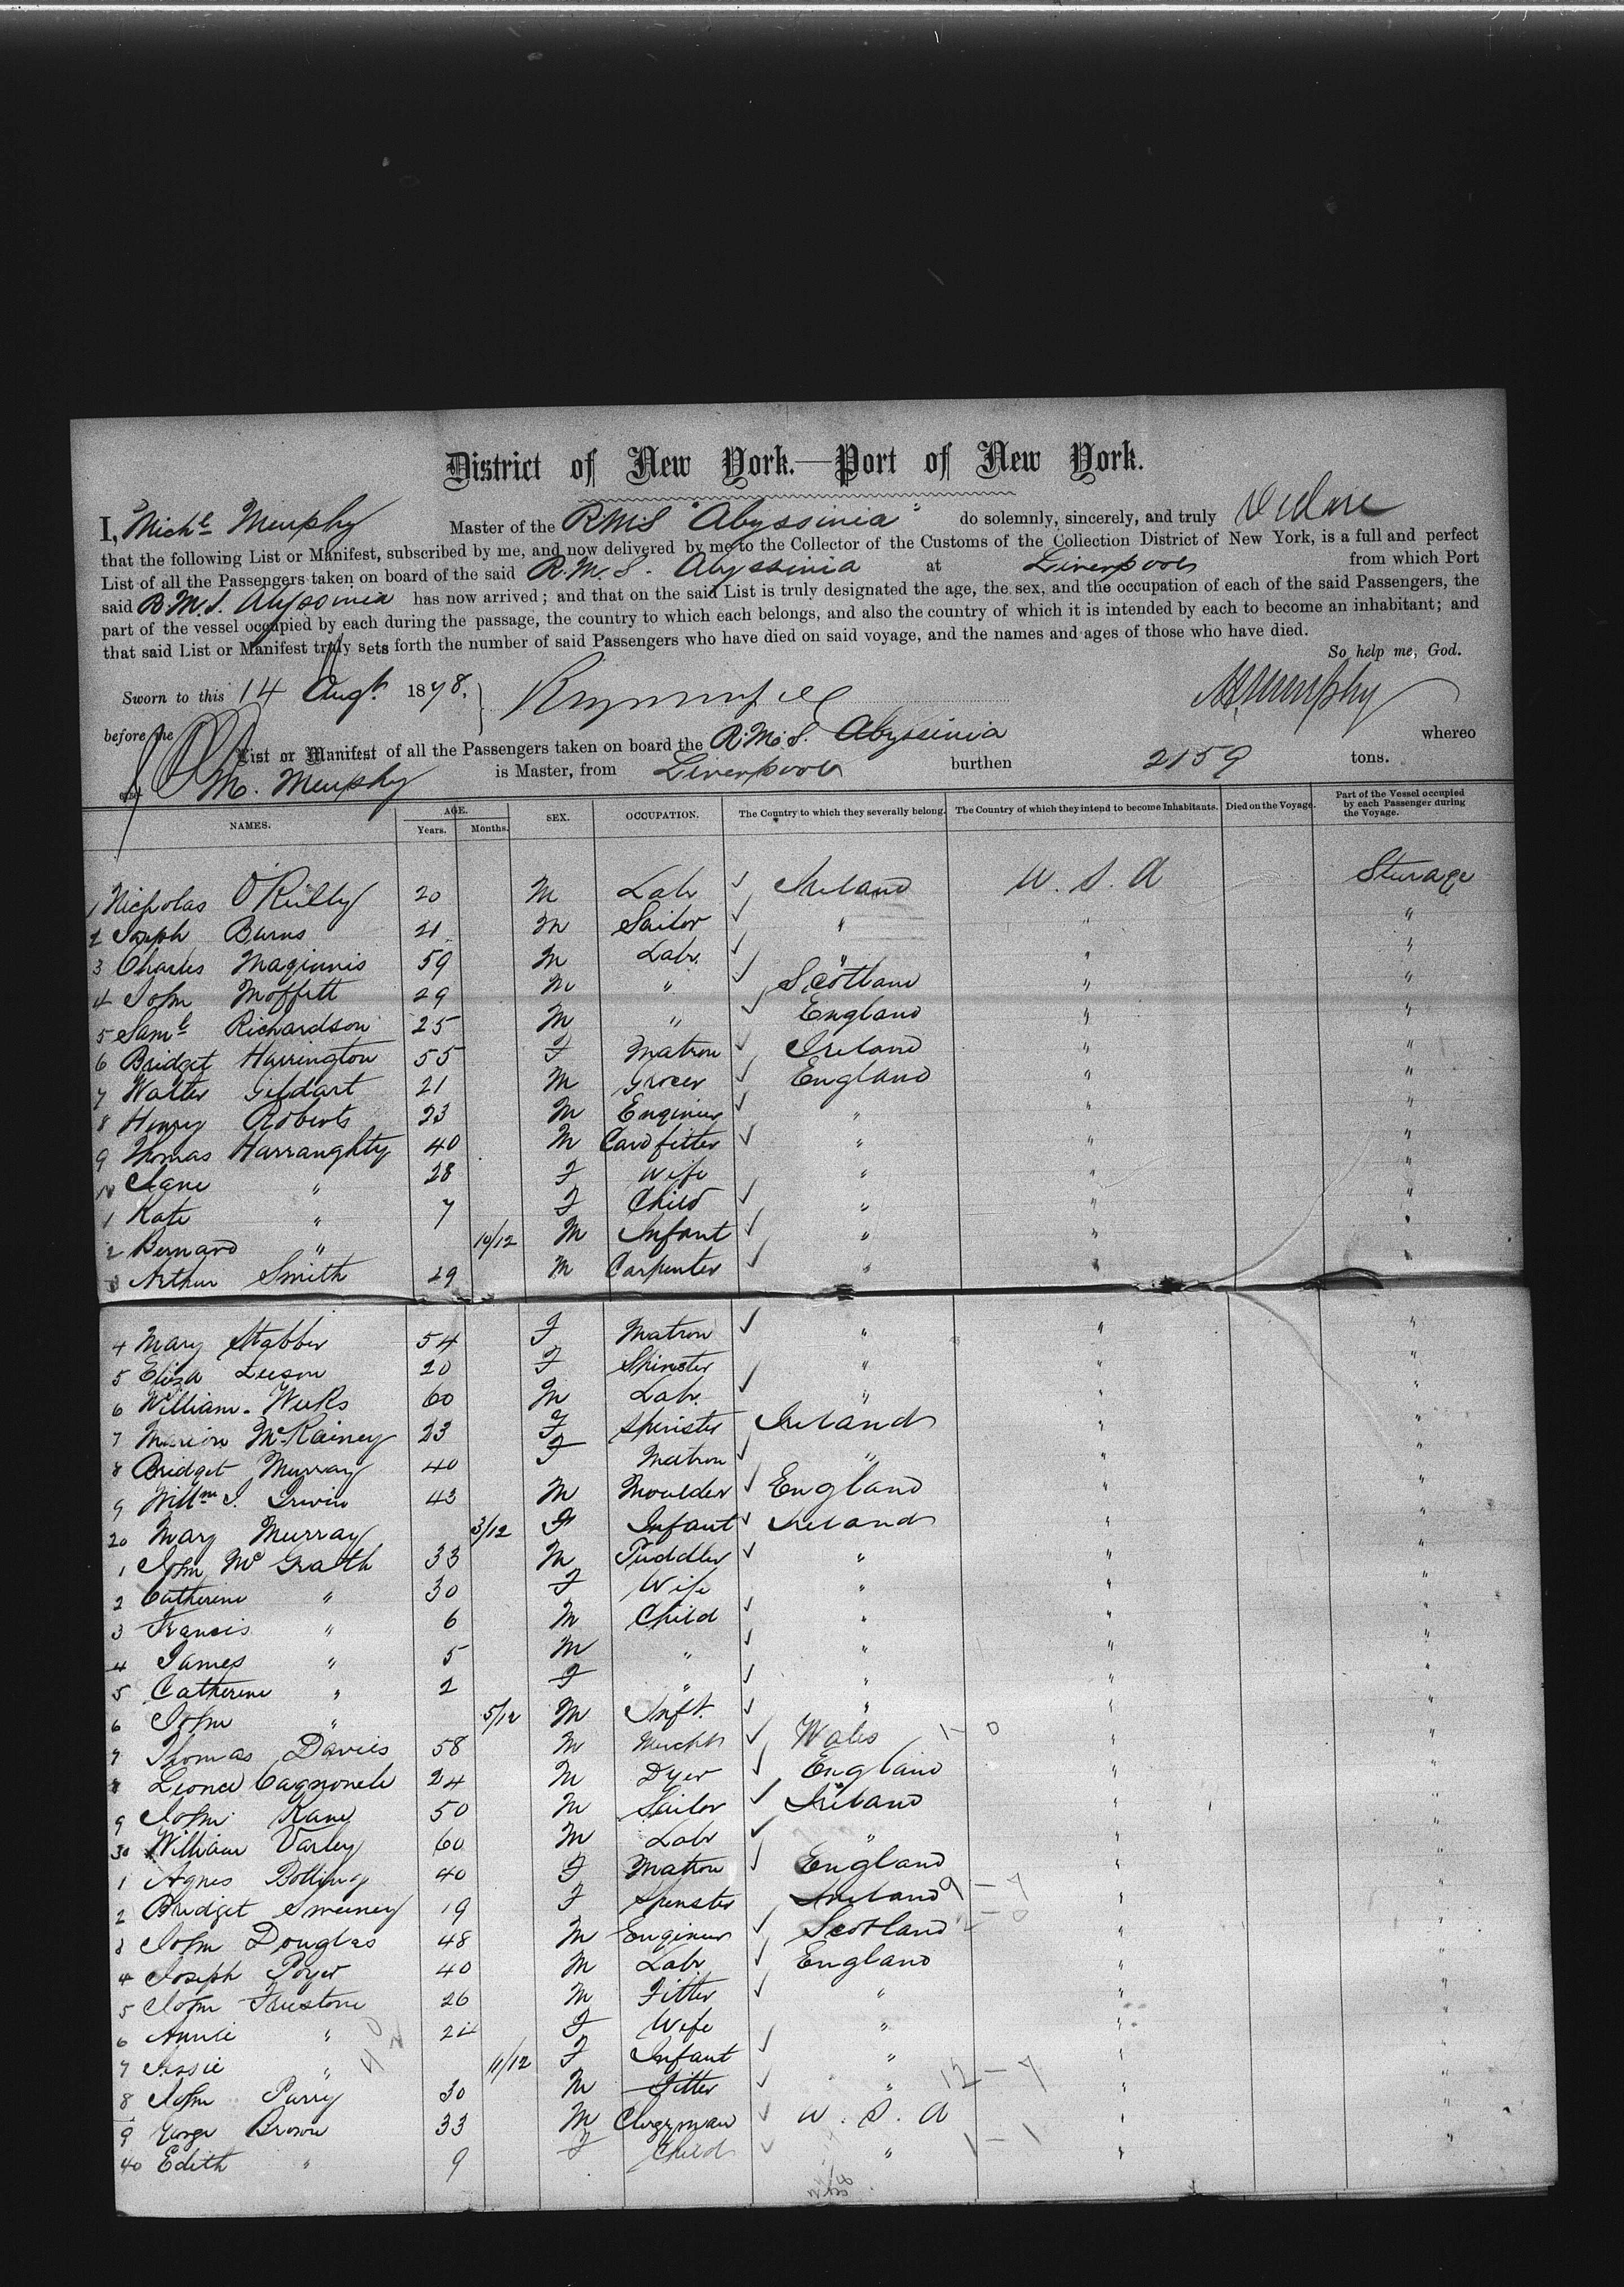 District of New York.—Port of New York.
I, Michl Murphy Master of the RMS "Abyssinia" do solemnly, sincerely, and truly
that the following List or Manifest, subscribed by me, and now delivered by me to the Collector of the Customs of the Collection District of New York, is a full and perfect
List of all the Passengers taken on board of the said R.M.S. Abyssinia at Liverpool from which Port
said R.M.S. Abyssinia has now arrived; and that on the said List is truly designated the age, the sex, and the occupation of each of the said Passengers, the
part of the vessel occupied by each during the passage, the country to which each belongs, and also the country of which it is intended by each to become an inhabitant; and
that said List or Manifest truly sets forth the number of said Passengers who have died on said voyage, and the names and ages of those who have died.
So help me, God.
Sworn to this 14 Augt. 1878. M. Murphy
before me
List or Manifest of all the Passengers taken on board the R.M.S. Abyssinia whereo
M. Murphy is Master, from Liverpool burthen 2159 tons.
NAMES. AGE. Years. Months. SEX. OCCUPATION. The Country to which they severally belong. The Country of which they intend to become Inhabitants. Died on the Voyage. Part of the Vessel occupied by each Passenger during the Voyage.
1 Nicholas O'Reilly 20 M Labr ✓ Ireland U.S.A Sturage
2 Joseph Burns 21 M Sailor ✓ " " "
3 Charles Maginnis 59 M Labr. ✓ " " "
4 John Moffett 29 M " ✓ Scotland " "
5 Saml Richardson 25 M " ✓ England " "
6 Bridget Harrington 55 F Matron ✓ Ireland " "
7 Walter Gildart 21 M Grocer ✓ England " "
8 Henry Roberts 23 M Engineer ✓ " " "
9 Thomas Harraughty 40 M Card fitter ✓ " " "
10 Jane " 28 F Wife " " "
1 Kate " 7 F Child ✓ " " "
2 Bernard " 10/12 M Infant ✓ " " "
3 Arthur Smith 29 M Carpenter ✓ " " "
4 Mary Stabber 54 F Matron ✓ " " "
5 Eliza Leeson 20 F Spinster " " "
6 William Weeks 60 M Labr. ✓ " " "
7 Marion McRainey 23 F Spinster Ireland " "
8 Bridget Murray 40 F Matron ✓ " " "
9 Willm J. Irwin 43 M Moulder ✓ England " "
20 Mary Murray 3/12 F Infant ✓ Ireland " "
1 John McGrath 33 M Puddler ✓ " " "
2 Catherine " 30 F Wife " " "
3 Francis " 6 M Child ✓ " " "
4 James " 5 M " ✓ " " "
5 Catherine " 2 F " ✓ " " "
6 John " 5/12 M Inft. ✓ " " "
7 Thomas Davies 58 M Mercht ✓ Wales 1-0 " "
8 Leonce Cagnonele 24 M Dyer ✓ England " "
9 John Kane 50 M Sailor ✓ Ireland " "
30 William Varley 60 M Labr ✓ " " "
1 Agnes Botting 40 F Matron ✓ England " "
2 Bridget Sweeney 19 F Spinster Ireland 9-7 " "
3 John Douglas 48 M Engineer ✓ Scotland 2-0 " "
4 Joseph Poyer 40 M Labr ✓ England " "
5 John Freestone 26 M Fitter ✓ " " "
6 Annie " 24 F Wife " " "
7 Jessie " 11/12 F Infant ✓ " " "
8 John Parry 30 M Fitter ✓ " 12-7 " "
9 George Brown 33 M Clergyman ✓ U.S.A " "
40 Edith " 9 F Child ✓ " 1-1 " "